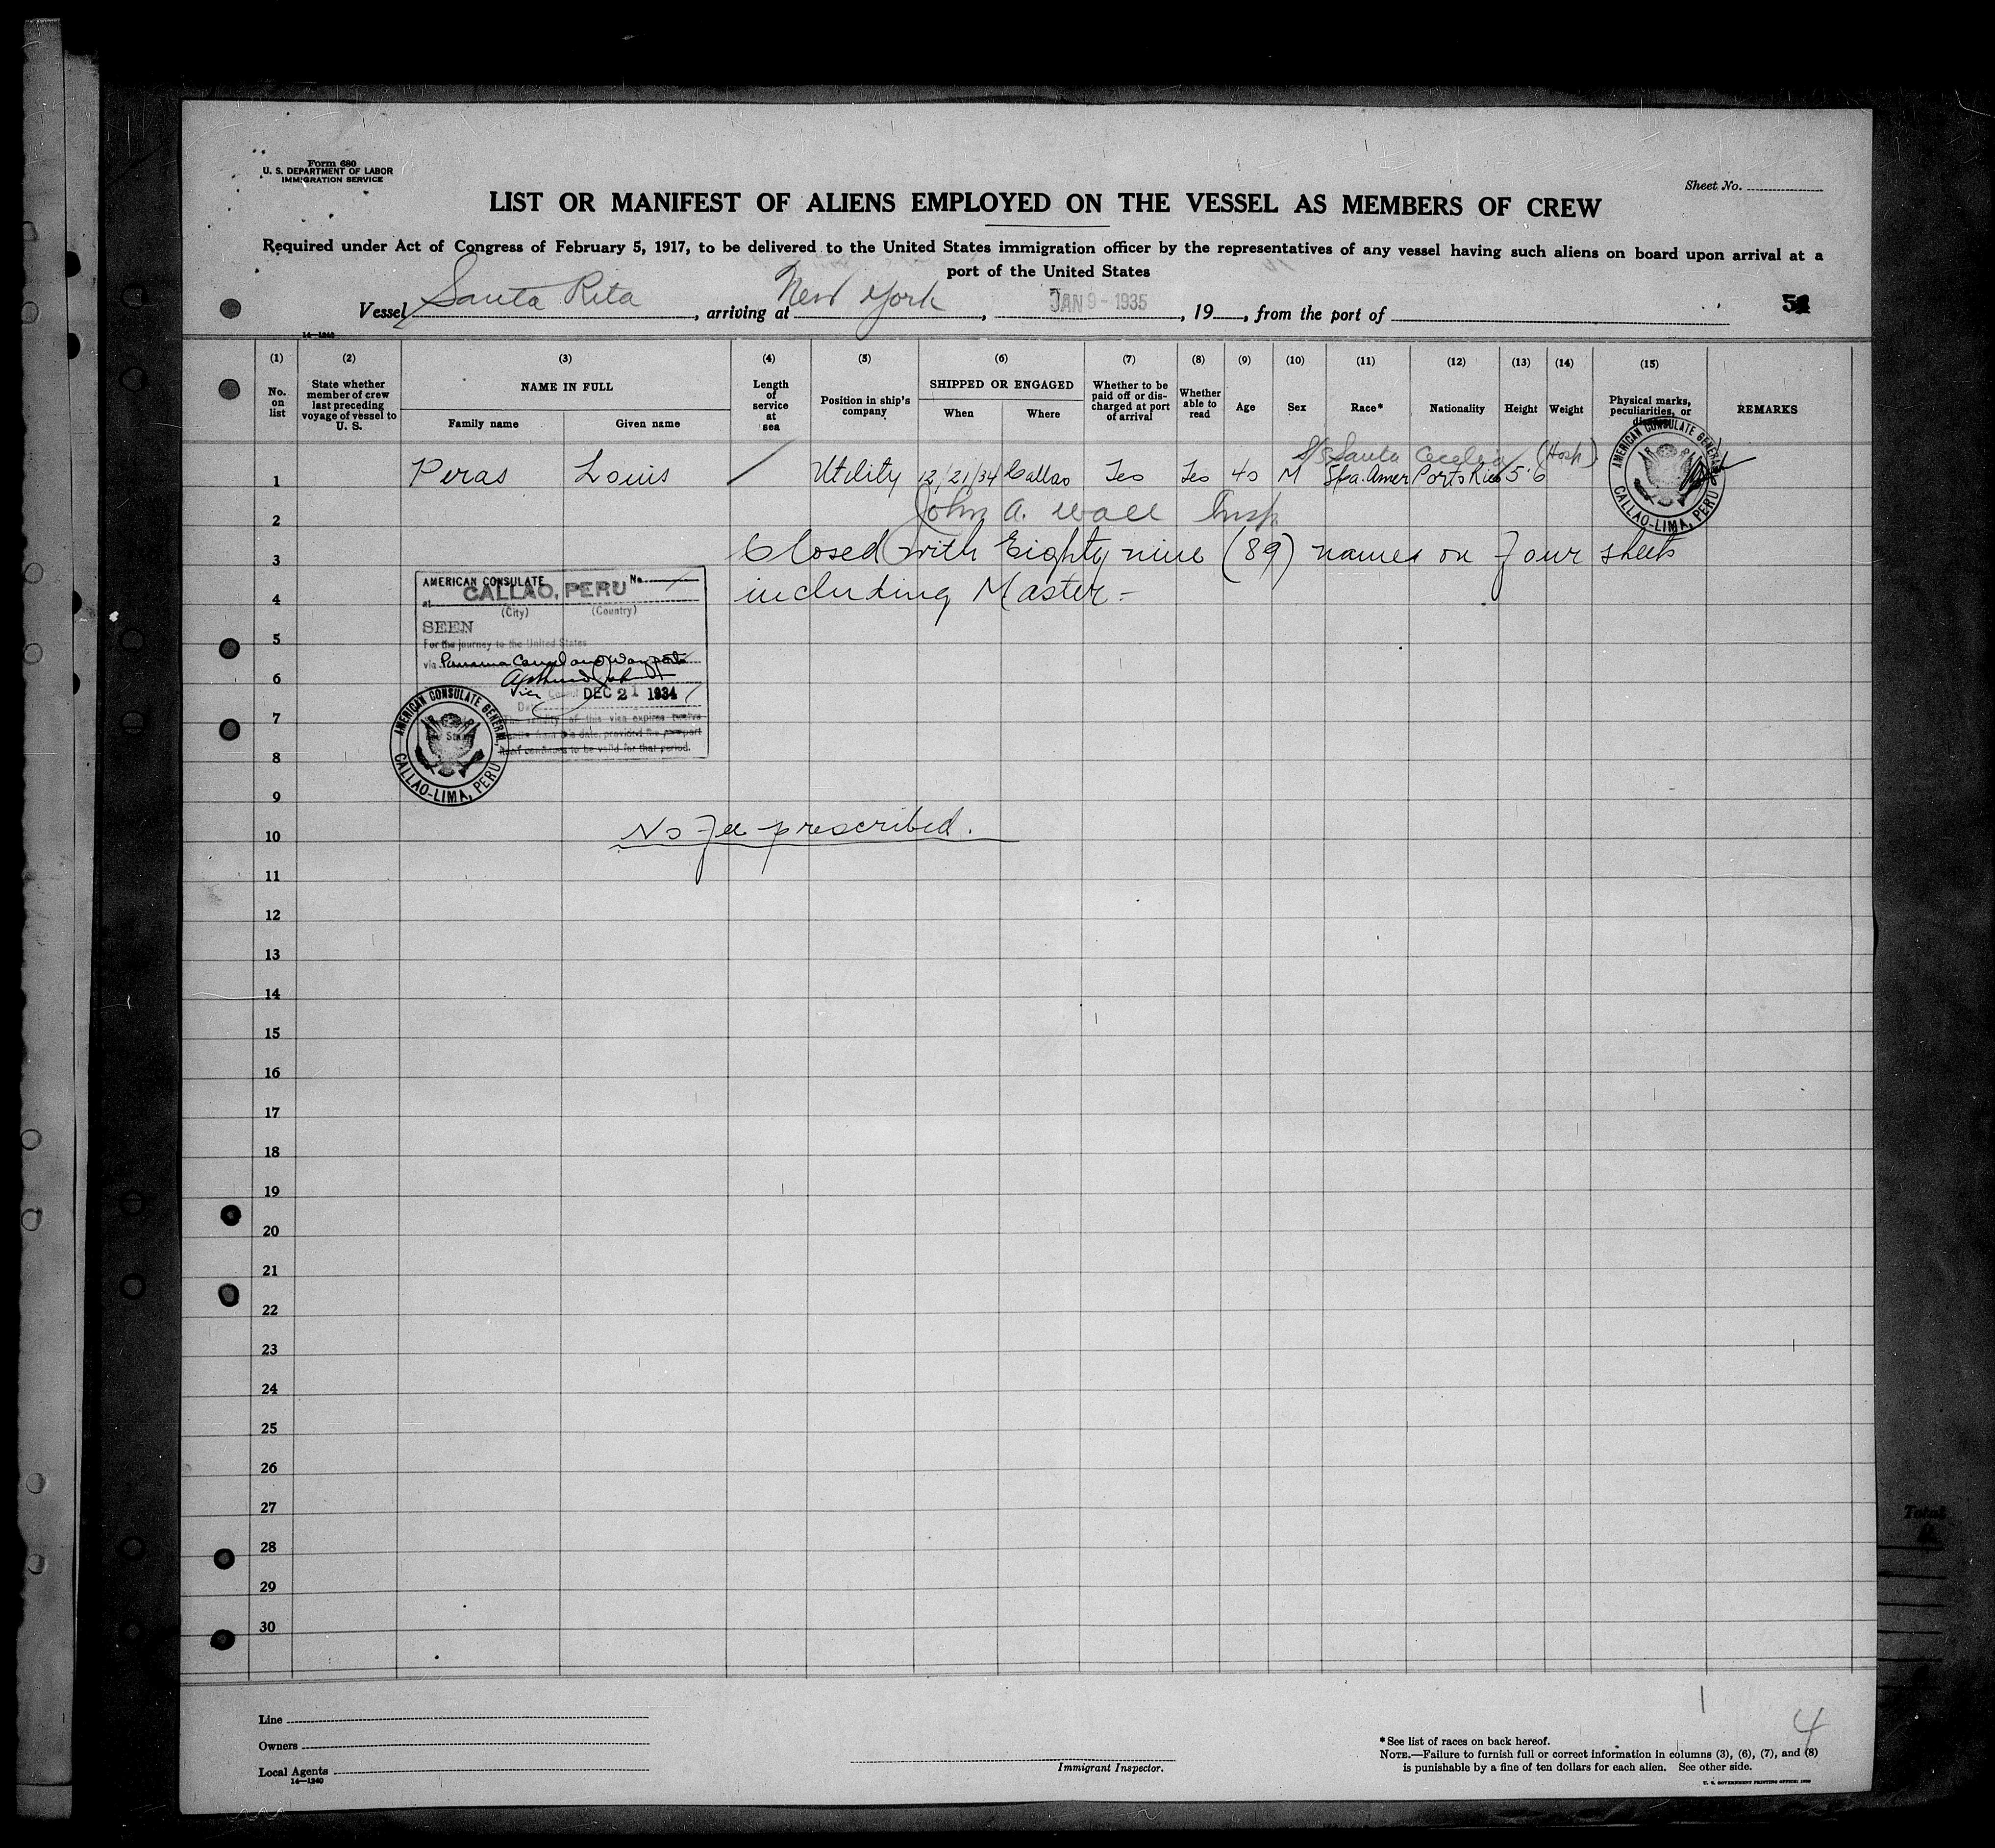 Form 680
U. S. DEPARTMENT OF LABOR
IMMIGRATION SERVICE
Sheet No.
LIST OR MANIFEST OF ALIENS EMPLOYED ON THE VESSEL AS MEMBERS OF CREW
Required under Act of Congress of February 5, 1917, to be delivered to the United States immigration officer by the representatives of any vessel having such aliens on board upon arrival at a
port of the United States
Vessel Santa Rita, arriving at New York, JAN 9 - 1935, 19, from the port of
14—1240
(1) No. on list
(2) State whether member of crew last preceding voyage of vessel to U. S.
(3) NAME IN FULL Family name Given name
(4) Length of service at sea
(5) Position in ship's company
(6) SHIPPED OR ENGAGED When Where
(7) Whether to be paid off or discharged at port of arrival
(8) Whether able to read
(9) Age
(10) Sex
(11) Race*
(12) Nationality
(13) Height
(14) Weight
(15) Physical marks, peculiarities, or
REMARKS
S/S Santa Cecelia (Hosp)
1 Peras Louis Utility 12/21/34 Callao Yes Yes 40 M Spa. Amer Porto Rico 5'6
AMERICAN CONSULATE GENERAL
CALLAO-LIMA, PERU
2 John A. Wall Insp
3 Closed with Eighty nine (89) names on Four sheets
4 including Master -
AMERICAN CONSULATE No.
at CALLAO, PERU
(City) (Country)
SEEN
For the journey to the United States
via Panama Canal and Way ports
Vice Consul DEC 21 1934
Date
The validity of this visa expires twelve
months from this date, provided the passport
itself continues to be valid for that period.
AMERICAN CONSULATE GENERAL
CALLAO-LIMA, PERU
5
6
7
8
9
10 No Fee prescribed.
11
12
13
14
15
16
17
18
19
20
21
22
23
24
25
26
27
28
29
30
Total
4
Line
Owners
Local Agents
14—1240
Immigrant Inspector.
*See list of races on back hereof.
NOTE.—Failure to furnish full or correct information in columns (3), (6), (7), and (8)
is punishable by a fine of ten dollars for each alien. See other side.